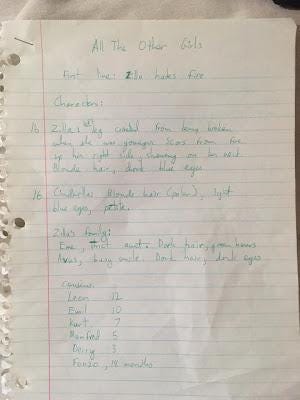 All The Other Girls
First line: Zilla hates fire
Characters:
16 Zilla: left leg crooked from being broken
when she was younger. Scars from fire
up her right side, showing on her neck
Blonde hair, dark blue eyes
16 Cinderella: Blonde hair, light
blue eyes, petite.
Zilla's family:
strict aunt. Dark hair,
smile. Dark hair, dark eyes
Cousins:
Leon 12
Emil 10
Kurt 7
Manfred 5
Derry 3
Fonzo, 14 months